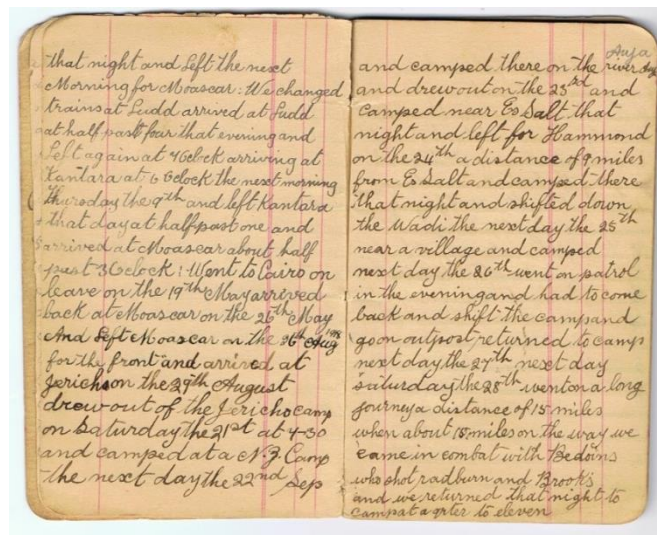 that night and left the next
Morning for Moascar: We changed
trains at Ludd arrived at Ludd
at half past four that evening and
Left again at 7 Oclock arriving at
Kantara at 6 Oclock the next morning
Thursday the 9th and left Kantara
that day at half past one and
arrived at Moascar about half
past 3 Oclock: Went to Cairo on
leave on the 19th May arrived
back at Moascar on the 26th May
And Left Moascar on the 26th Aug 1918
for the front and arrived at
Jericho on the 29th August
drew out of the Jericho camp
on Saturday the 21st at 4-30
and camped at a N.Z. Camp
the next day the 22nd Sep
Auja
and camped there on the river
and drew out on the 23rd and
camped near Es Salt that
night and left for Hammond
on the 24th a distance of 9 miles
from Es Salt and camped there
that night and shifted down
the Wadi the next day the 25th
near a village and camped
next day the 26th went on patrol
in the evening and had to come
back and shift the camp and
go on outpost, returned to camp
next day the 27th next day
Saturday the 28th went on a long
journey a distance of 15 miles
when about 15 miles on the way we
came in combat with Bedoins
who shot radburn and Brooks
and we returned that night to
camp at a qrter to eleven